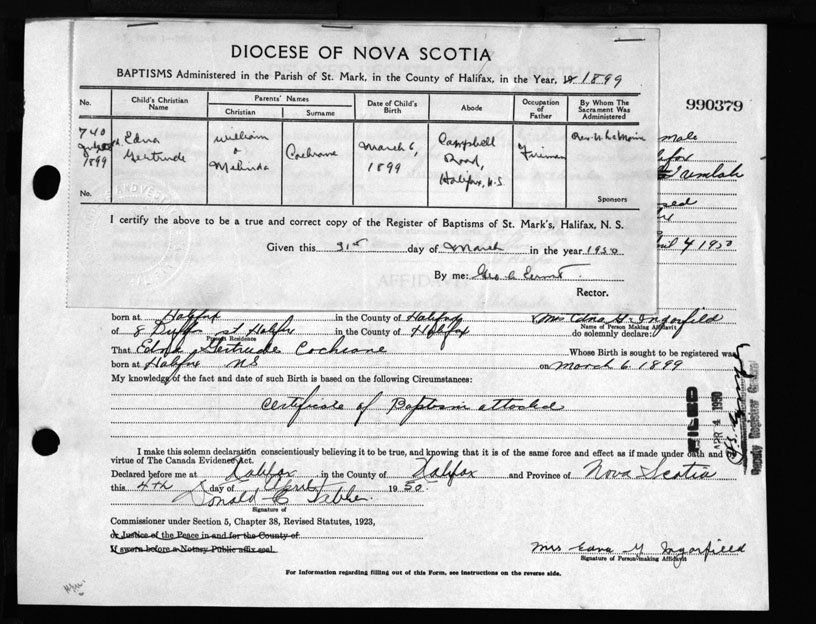 DIOCESE OF NOVA SCOTIA
BAPTISMS Administered in the Parish of St. Mark, in the County of Halifax, in the Year, 1899
990379
No. Child's Christian Name Parents' Names Christian Surname Date of Child's Birth Abode Occupation of Father By Whom The Sacrament Was Administered
740 1899 Edna Gertrude William & Melinda Cochrane March 6, 1899 Campbell Road, Halifax, N.S. Fireman Rev. N. LeMoine
male
No. Sponsors
I certify the above to be a true and correct copy of the Register of Baptisms of St. Mark's, Halifax, N. S.
Given this 31st day of March in the year 1950
April 4 1950
By me:
Rector.
AFFIDAVIT
born at Halifax in the County of Halifax Mrs Edna G. Ingarfield
Name of Person Making Affidavit
of 8 Duffus st Halifax in the County of Halifax do solemnly declare:
Present Residence
That Edna Gertrude Cochrane Whose Birth is sought to be registered was
born at Halifax NS on March 6. 1899
My knowledge of the fact and date of such Birth is based on the following Circumstances:
Certificate of Baptism attached
FILED
APR 4 1950
Deputy Registrar General
I make this solemn declaration conscientiously believing it to be true, and knowing that it is of the same force and effect as if made under oath and by
virtue of The Canada Evidence Act.
Declared before me at Halifax in the County of Halifax and Province of Nova Scotia
this 4th day of April 1950
Donald C
Signature of
Commissioner under Section 5, Chapter 38, Revised Statutes, 1923,
or Justice of the Peace in and for the County of
If sworn before a Notary Public affix seal.
Mrs Edna G Ingarfield
Signature of Person making Affidavit
For information regarding filling out of this Form, see instructions on the reverse side.